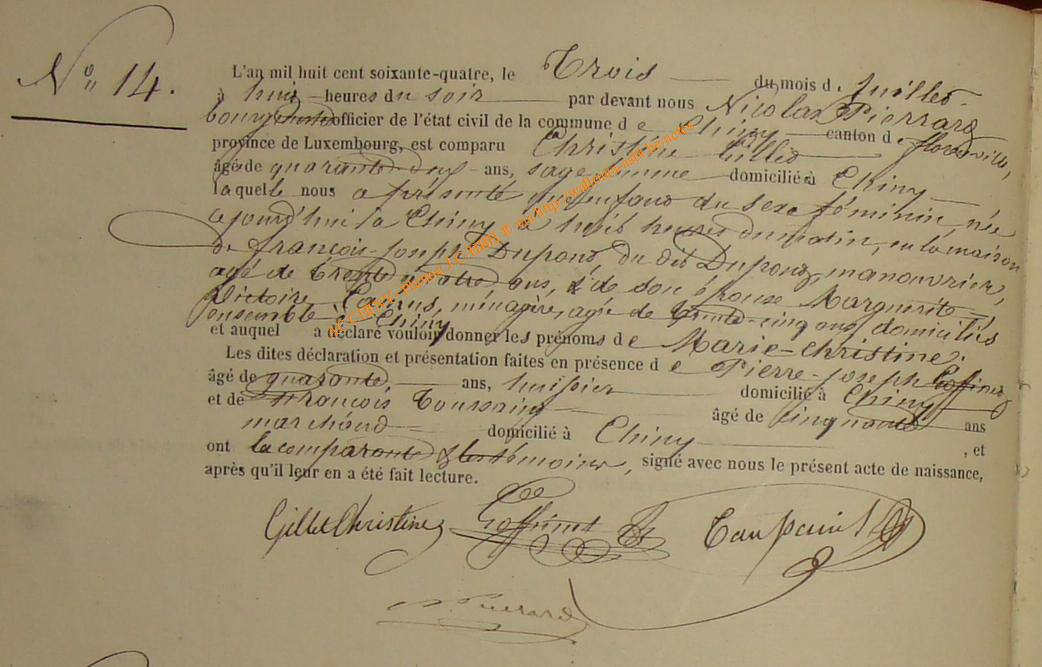 N° 14.
L'an mil huit cent soixante-quatre, le Trois du mois de Juillet
à huit heures du soir par devant nous Nicolas Pierrard
bourgmestre officier de l'état civil de la commune de Chiny canton de florenville,
province de Luxembourg, est comparu Christine Gillet
âgé de quarante deux ans, sage femme domicilié à Chiny
laquelle nous a présenté un enfant du sexe féminin, née
ce jourd'hui à Chiny à huit heures du matin, en la maison
de françois-Joseph Dupont, du dit Dupont, manouvrier,
agé de trente quatre ans, & de son épouse Marguerite-
Victoire ménagère, agée de trente-cinq ans, domiciliés
ensemble à Chiny
et auquel a déclaré vouloir donner les prénoms de Marie-Christine.
Les dites déclaration et présentation faites en présence de Pierre-Joseph Goffinet
âgé de quarante ans, huissier domicilié à Chiny
et de françois Toussaint âgé de cinquante ans
marchand domicilié à Chiny , et
ont la comparante & les témoins, signé avec nous le présent acte de naissance,
après qu'il leur en a été fait lecture.
Gillet Christine Goffinet
N. Pierrard